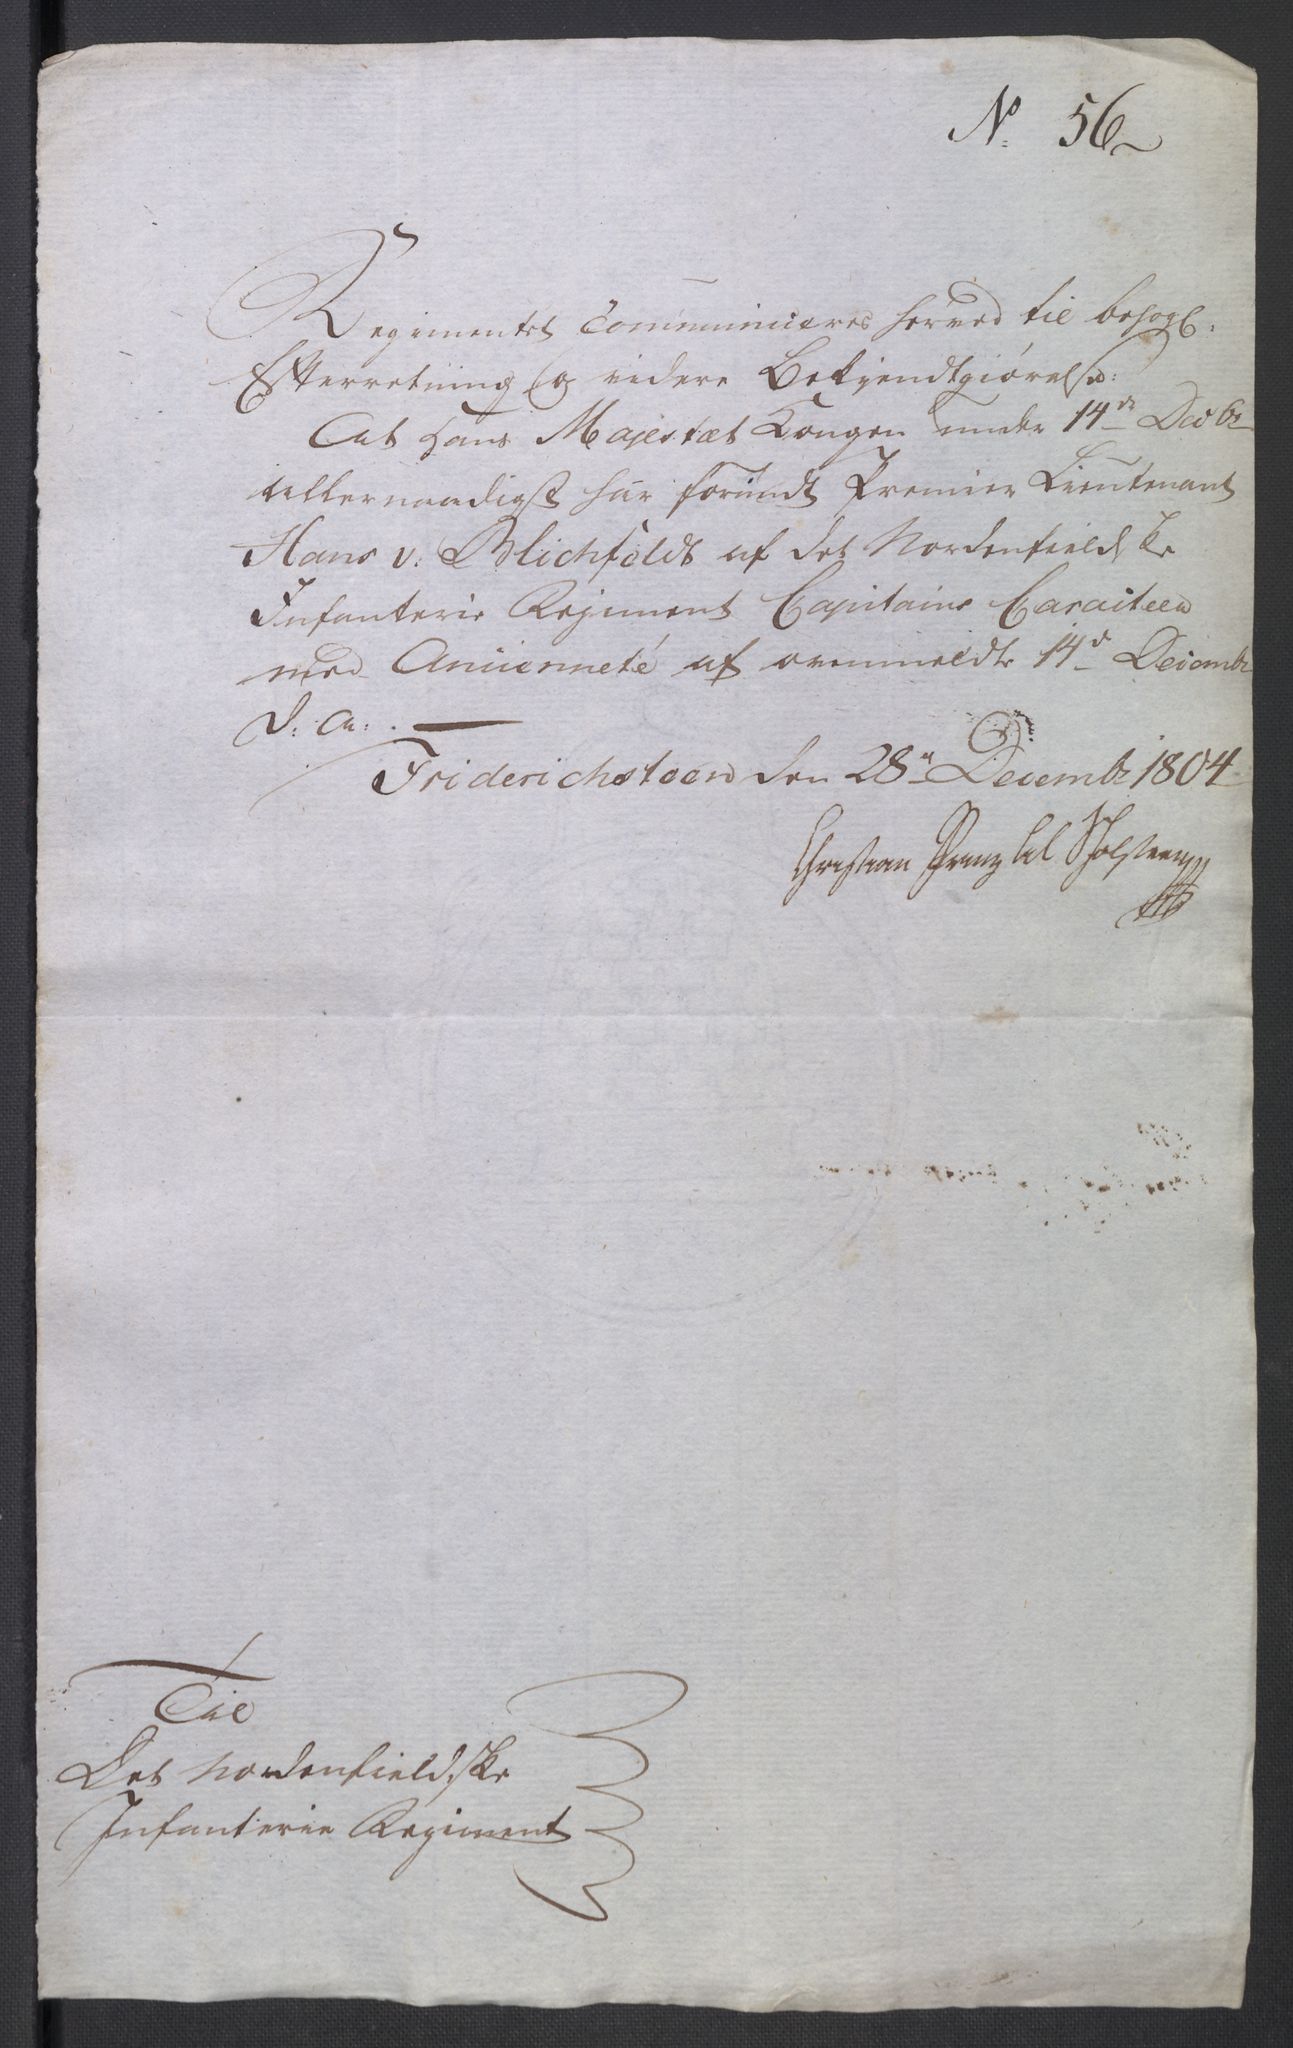 No 56
Regimentet Communiceres herved til behøgl:
Efterretning og videre Bekjendtgiörelse:
At Hans Majestæt Kongen under 14de Decbr
allernaadigst har forundt Premier Lieutenant
Hans v. Blichfeldt af det Nordenfieldske
Infanterie Regiment Capitains Caracteer
med Ancienneté af ovenmeldte 14d Decembr
d: a: .
Friderichsteen den 28n Decembr 1804
Christian Prinz Holsteen
Til
Det Nordenfieldske
Infanterie Regiment